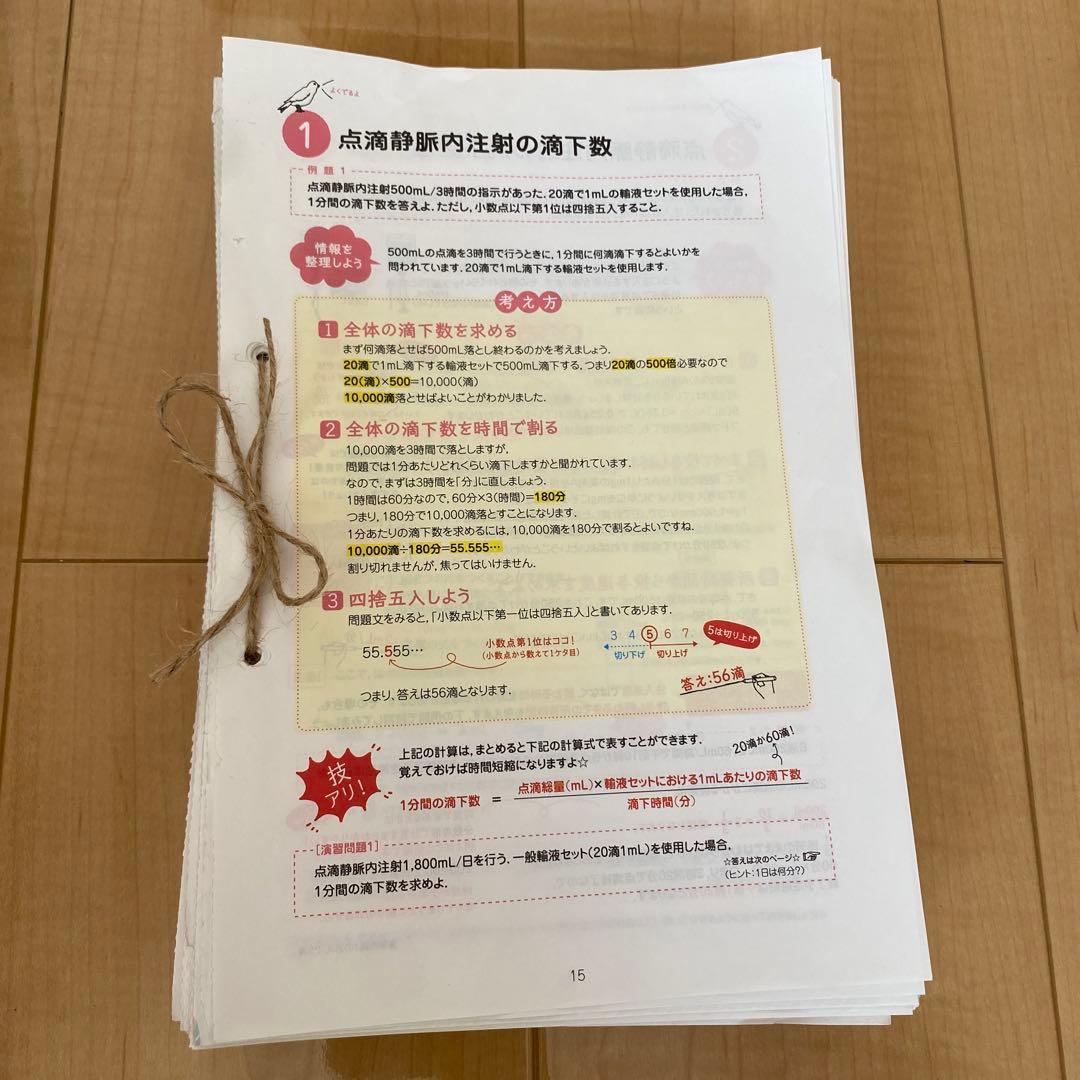 よくでるよ
1 点滴静脈内注射の滴下数
例題1
点滴静脈内注射500mL/3時間の指示があった.20滴で1mLの輸液セットを使用した場合,
1分間の滴下数を答えよ.ただし,小数点以下第1位は四捨五入すること.
情報を
整理しよう
500mLの点滴を3時間で行うときに,1分間に何滴滴下するとよいかを
問われています.20滴で1mL滴下する輸液セットを使用します.
考え方
1 全体の滴下数を求める
まず何滴落とせば500mL落とし終わるのかを考えましょう.
20滴で1mL滴下する輸液セットで500mL滴下する.つまり20滴の500倍必要なので
20(滴)×500=10,000(滴)
10,000滴落とせばよいことがわかりました.
2 全体の滴下数を時間で割る
10,000滴を3時間で落としますが,
問題では1分あたりどれくらい滴下しますかと聞かれています.
なので,まずは3時間を「分」に直しましょう.
1時間は60分なので,60分×3(時間)=180分
つまり,180分で10,000滴落とすことになります.
1分あたりの滴下数を求めるには,10,000滴を180分で割るとよいですね.
10,000滴÷180分=55.555…
割り切れませんが,焦ってはいけません.
3 四捨五入しよう
問題文をみると,「小数点以下第一位は四捨五入」と書いてあります.
55.555…
小数点第1位はココ!
(小数点から数えて1ケタ目)
3 4 5 6 7
切り下げ 切り上げ
5は切り上げ
つまり,答えは56滴となります.
答え:56滴
技アリ!
上記の計算は,まとめると下記の計算式で表すことができます.
覚えておけば時間短縮になりますよ☆
20滴か60滴!
1分間の滴下数 = 点滴総量(mL)×輸液セットにおける1mLあたりの滴下数
滴下時間(分)
[演習問題1]
点滴静脈内注射1,800mL/日を行う.一般輸液セット(20滴1mL)を使用した場合,
1分間の滴下数を求めよ.
☆答えは次のページ☆
(ヒント:1日は何分?)
15